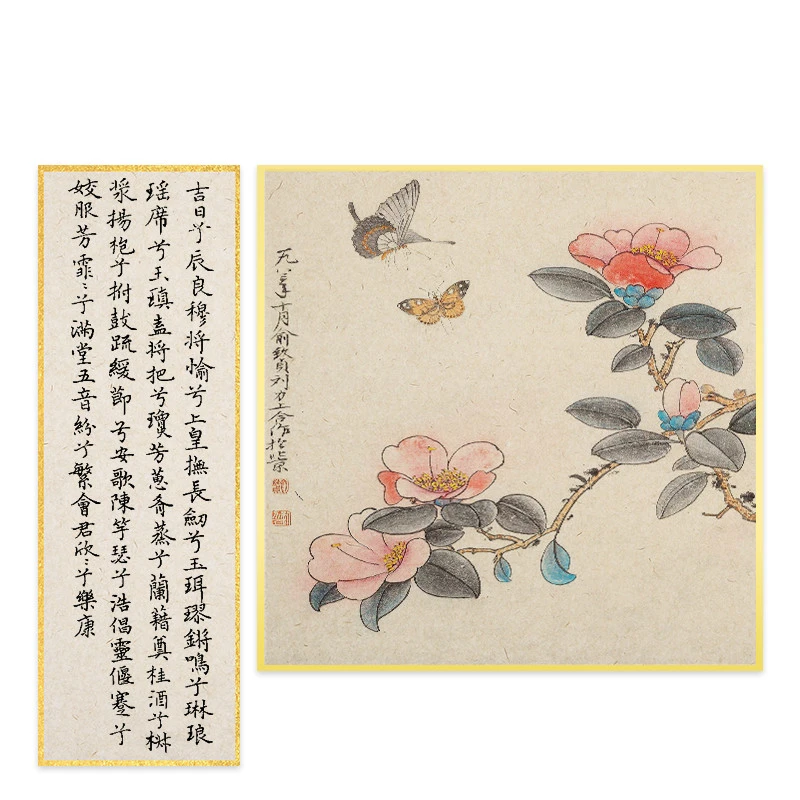 吉日兮辰良穆將愉兮上皇撫長劒兮玉珥璆鏘鳴兮琳琅
瑶席兮玉瑱盍將把兮瓊芳蕙肴蒸兮蘭藉奠桂酒兮椒
漿揚枹兮拊鼓疏緩節兮安歌陳竽瑟兮浩倡靈偃蹇兮
姣服芳霏〻兮滿堂五音紛兮繁會君欣〻兮樂康
一九八三年十月俞致貞刘力上合作於北京